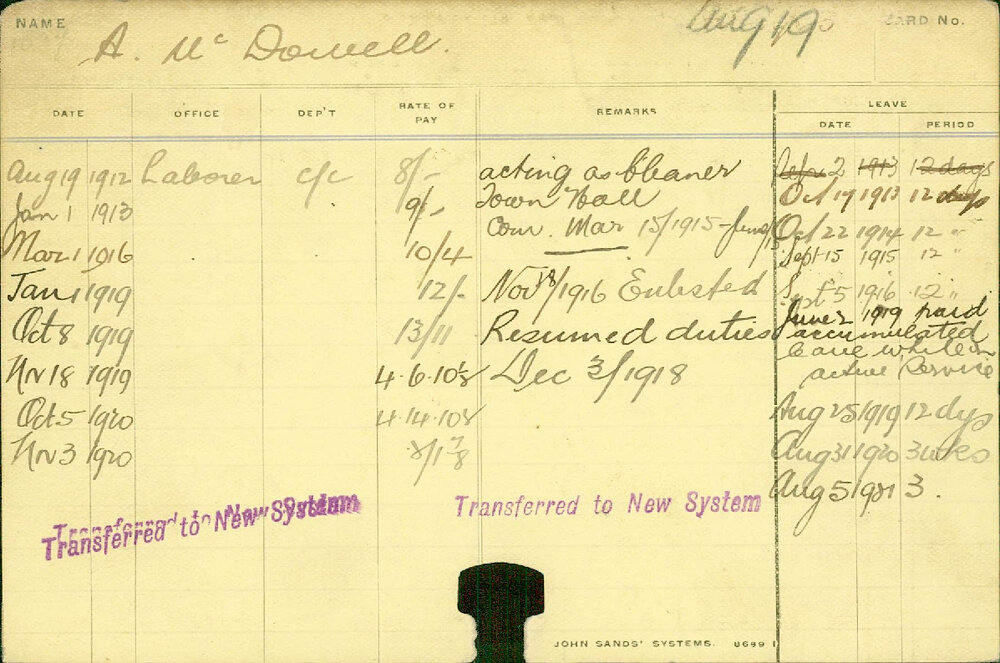 NAME
A. Mc Dowell.
Aug 19
CARD No.
DATE OFFICE DEP'T RATE OF PAY REMARKS LEAVE
DATE PERIOD
Aug 19 1912 Laborer c/c 8/- acting as Cleaner
Jan 1 1913 9/- Town Hall
Com. Mar 15/1915 -
Mar 1 1916 10/4
Jan 1 1919 12/- Nov 18/1916 Enlisted
Oct 8 1919 13/11 Resumed duties
Nv 18 1919 4.6.10½ Dec 3/1918
Oct 5 1920 4.14.10½
Nv 3 1920
2 1913 12 days
Oct 17 1913 12 days
Oct 22 1914 12 "
Sept 15 1915 12 "
Sept 5 1916 12 "
June 2 1919 paid
accumulated
leave while on
active Service
Aug 25 1919 12 dys
Aug 31 1920 3 wks
Aug 5 1921 3.
Transferred to New System
Transferred to New System
Transferred to New System
JOHN SANDS' SYSTEMS. 8689